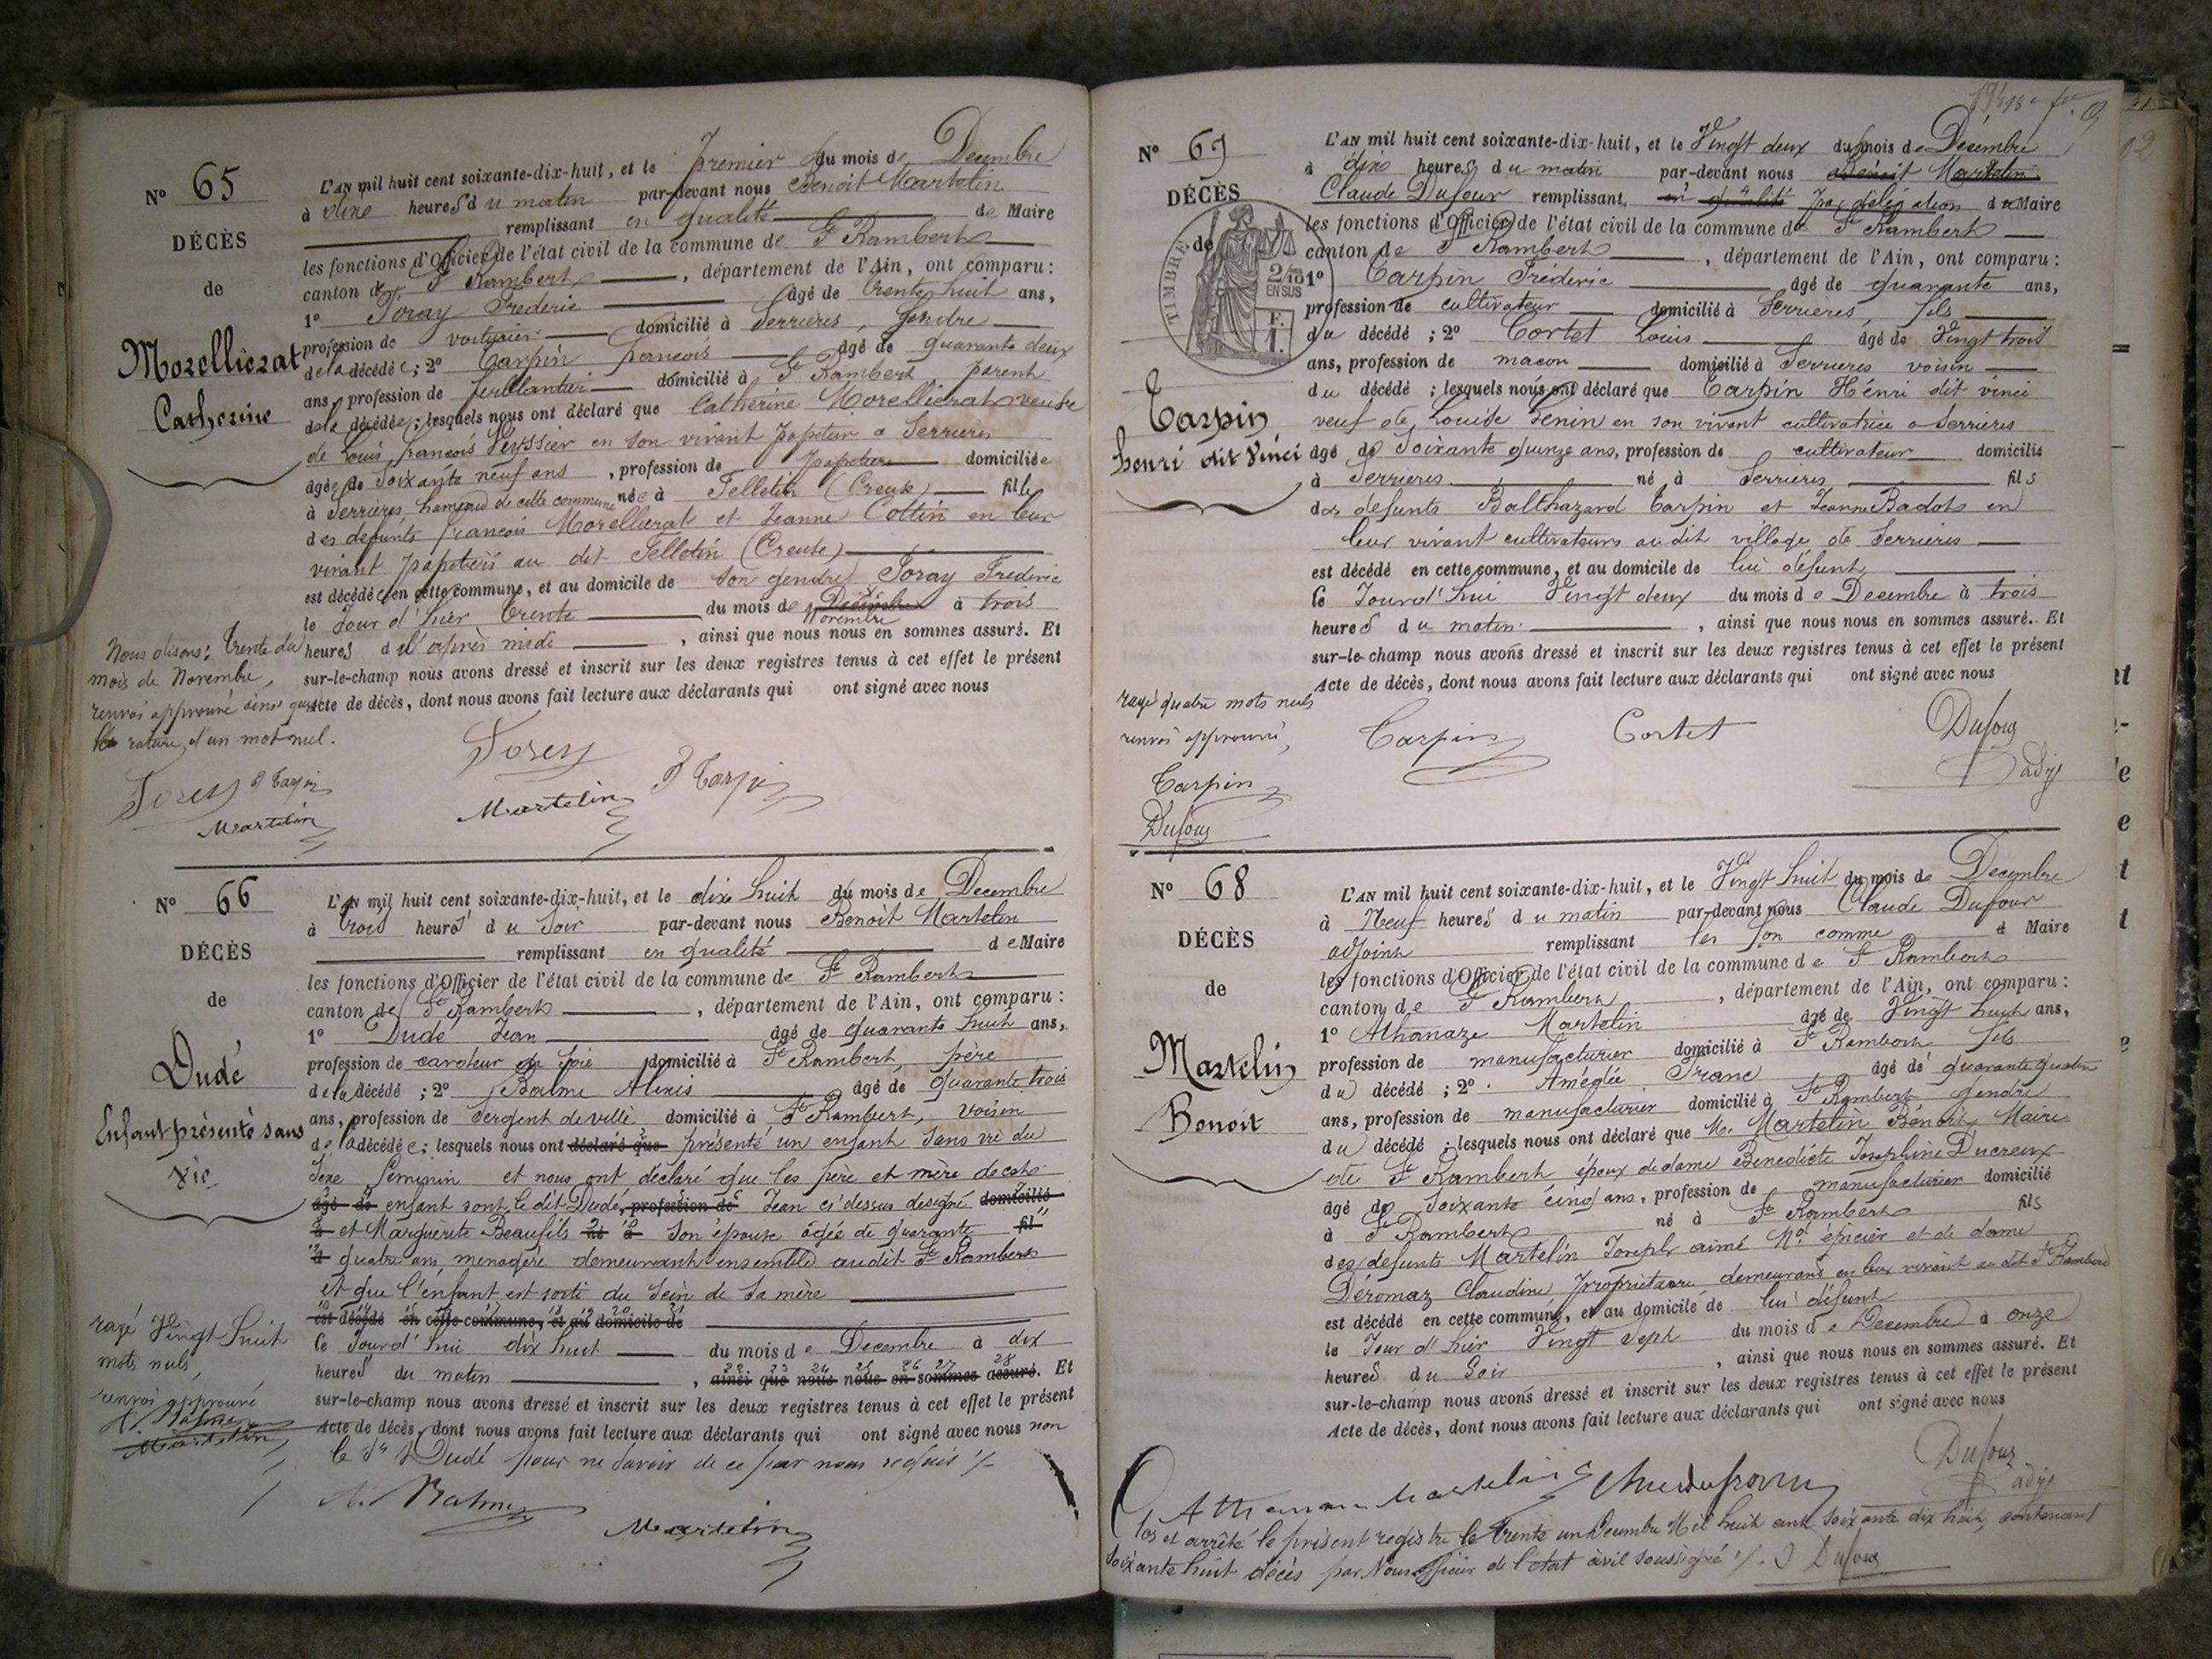 N° 65
DÉCÈS
de
Morellierat
Catherine
L'AN mil huit cent soixante-dix-huit, et le premier du mois de Decembre
à dixe heures du matin par-devant nous Benoit Martelin
remplissant en qualité de Maire
les fonctions d'Officier de l'état civil de la commune de St Rambert
canton de St Rambert, département de l'Ain, ont comparu :
1° Foray Frederic âgé de trente huit ans,
profession de voiturier domicilié à Serrieres, gendre
de la décédée ; 2° Carpin francois âgé de quarante deux
ans, profession de ferblantier domicilié à St Rambert parent
de la décédée ; lesquels nous ont déclaré que Catherine Morellierat veufve
de Louis francois Teyssier en son vivant papetier a Serrieres
âgée de Soixante neuf ans, profession de papetiere domiciliée
à Serrieres hameau de cette commune née à Felletin (Creuse) fille
des defunts francois Morellierat et Jeanne Cottin en leur
vivant papetiers au dit Felletin (Creuse)
est décédée en cette commune, et au domicile de son gendre Foray Frederic
le Jour d'hier trente du mois de Decembre Novembre à trois
heures de l'après midi, ainsi que nous nous en sommes assuré. Et
sur-le-champ nous avons dressé et inscrit sur les deux registres tenus à cet effet le présent
Acte de décès, dont nous avons fait lecture aux déclarants qui ont signé avec nous
Nous disons : trente du
mois de Novembre,
renvoi approuvé ainsi que
la rature d'un mot nul.
Forey
Martelin
Carpin
Forey Carpin
Martelin
N° 66
DÉCÈS
de
Dudé
Enfant présenté sans
vie
L'AN mil huit cent soixante-dix-huit, et le dix huit du mois de Decembre
à trois heures du Soir par-devant nous Benoit Martelin
remplissant en qualité de Maire
les fonctions d'Officier de l'état civil de la commune de St Rambert
canton de St Rambert, département de l'Ain, ont comparu :
1° Dudé Jean âgé de quarante huit ans,
profession de cardeur de soie domicilié à St Rambert, père
de la décédé ; 2° Balme Alexis âgé de quarante trois
ans, profession de Sergent de ville domicilié à St Rambert, voisin
de la décédée ; lesquels nous ont déclaré que présenté un enfant sans vie du
Sexe Féminin et nous ont déclaré que les père et mère de cet
âgé de enfant sont le dit Dudé, profession de Jean ci dessus designé domicilié
à et Marguerite Beaufils né à son épouse âgée de quarante fil
d quatre ans, menagère demeurant ensemble audit St Rambert
et que l'enfant est sorti du Sein de Sa mère
est décédé en cette commune, et au domicile de
le Jourd'hui dix huit du mois de Decembre à dix
heures du matin, ainsi que nous nous en sommes assuré. Et
sur-le-champ nous avons dressé et inscrit sur les deux registres tenus à cet effet le présent
Acte de décès, dont nous avons fait lecture aux déclarants qui ont signé avec nous non
le dr Dudé pour ne Savoir de ce par nous requis
ragé Vingt huit
mots nuls,
renvoi approuvé
A. Balme
Martelin
A. Balme
Martelin
N° 69
DÉCÈS
de
TIMBRE
2/10
EN SUS
F.
1.
Carpin
henri dit Vinci
L'AN mil huit cent soixante-dix-huit, et le Vingt deux du mois de Décembre
à dixe heures du matin par-devant nous Bénoit Martelin
Claude Dufour remplissant en qualité par délégation de Maire
les fonctions d'Officier de l'état civil de la commune de St Rambert
canton de St Rambert, département de l'Ain, ont comparu :
1° Carpin Fréderic âgé de quarante ans,
profession de cultivateur domicilié à Serrieres, fils
du décédé ; 2° Cortet Louis âgé de Vingt trois
ans, profession de macon domicilié à Serrieres voisin
du décédé ; lesquels nous ont déclaré que Carpin Hénri dit vinci
veuf de Louise Genin en son vivant cultivatrice a Serrieres
âgé de Soixante quinze ans, profession de cultivateur domicilié
à Serrieres né à Serrieres fils
des defunts Balthazard Carpin et Jeanne Badot en
leur vivant cultivateurs au dit village de Serrieres
est décédé en cette commune, et au domicile de lui défunt
le Jourd'hui Vingt deux du mois de Decembre à trois
heures du matin, ainsi que nous nous en sommes assuré. Et
sur-le-champ nous avons dressé et inscrit sur les deux registres tenus à cet effet le présent
Acte de décès, dont nous avons fait lecture aux déclarants qui ont signé avec nous
ragé quatre mots nuls
renvoi approuvé,
Carpin
Dufour
Carpin Cortet Dufour
adjt
N° 68
DÉCÈS
de
Martelin
Benoit
L'AN mil huit cent soixante-dix-huit, et le Vingt huit du mois de Decembre
à Neuf heures du matin par-devant nous Claude Dufour
adjoint remplissant comme d Maire
les fonctions d'Officier de l'état civil de la commune de St Rambert
canton de St Rambert, département de l'Ain, ont comparu :
1° Athanaze Martelin âgé de Vingt huit ans,
profession de manufacturier domicilié à St Rambert fils
du décédé ; 2° Amédée Franc âgé de quarante quatre
ans, profession de manufacturier domicilié à St Rambert gendre
du décédé ; lesquels nous ont déclaré que M. Martelin Bénoit, Maire
de St Rambert, époux de dame Benedicte Josephine Ducreux
âgé de Soixante cinq ans, profession de manufacturier domicilié
à St Rambert né à St Rambert fils
des defunts Martelin Joseph aimé Nd épicier et de dame
Déromaz Claudine, propriétaire demeurans en leur vivant au dit St Rambert
est décédé en cette commune, et au domicile de lui défunt
le Jour d'hier Vingt Sept du mois de Decembre à onze
heures du Soir, ainsi que nous nous en sommes assuré. Et
sur-le-champ nous avons dressé et inscrit sur les deux registres tenus à cet effet le présent
Acte de décès, dont nous avons fait lecture aux déclarants qui ont signé avec nous
Dufour
adjt
Clos et arrêté le présent registre le trente un Decembre Mil huit cent soixante dix huit, contenant
Soixante huit décès par Nous officier de l'état civil soussigné Dufour